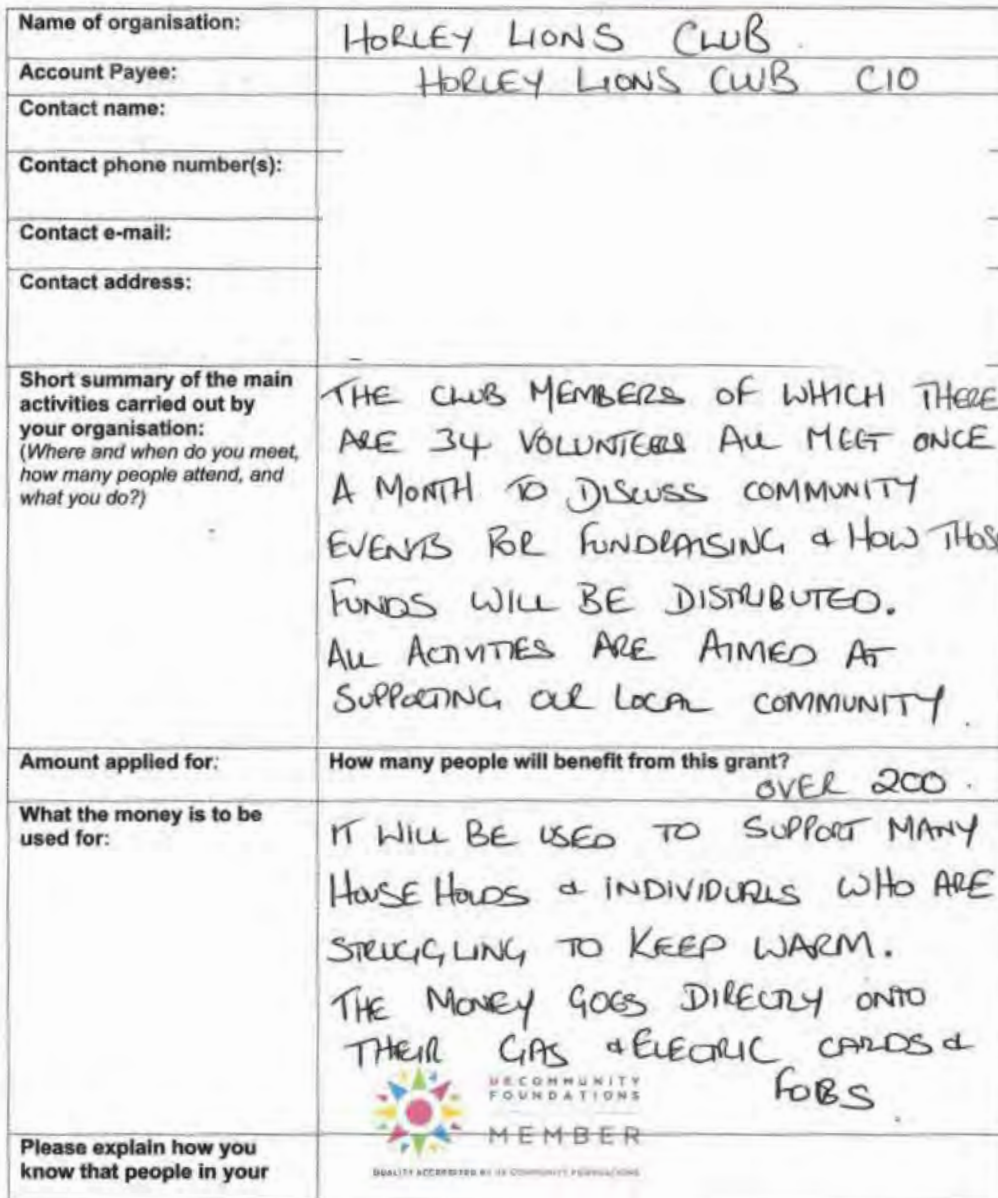 Name of organisation:
HORLEY LIONS CLUB.
Account Payee:
HORLEY LIONS CLUB CIO
Contact name:
Contact phone number(s):
Contact e-mail:
Contact address:
Short summary of the main
activities carried out by
your organisation:
(Where and when do you meet,
how many people attend, and
what you do?)
THE CLUB MEMBERS OF WHICH THERE
ARE 34 VOLUNTEERS ALL MEET ONCE
A MONTH TO DISCUSS COMMUNITY
EVENTS FOR FUNDRAISING & HOW THOS
FUNDS WILL BE DISTRIBUTED.
ALL ACTIVITIES ARE AIMED AT
SUPPORTING OUR LOCAL COMMUNITY.
Amount applied for:
How many people will benefit from this grant?
OVER 200.
What the money is to be
used for:
IT WILL BE USED TO SUPPORT MANY
HOUSE HOLDS & INDIVIDUALS WHO ARE
STRUGGLING TO KEEP WARM.
THE MONEY GOES DIRECTLY ONTO
THEIR GAS & ELECTRIC CARDS &
FOBS
UK COMMUNITY
FOUNDATIONS
MEMBER
QUALITY ACCREDITED BY UK COMMUNITY FOUNDATIONS
Please explain how you
know that people in your